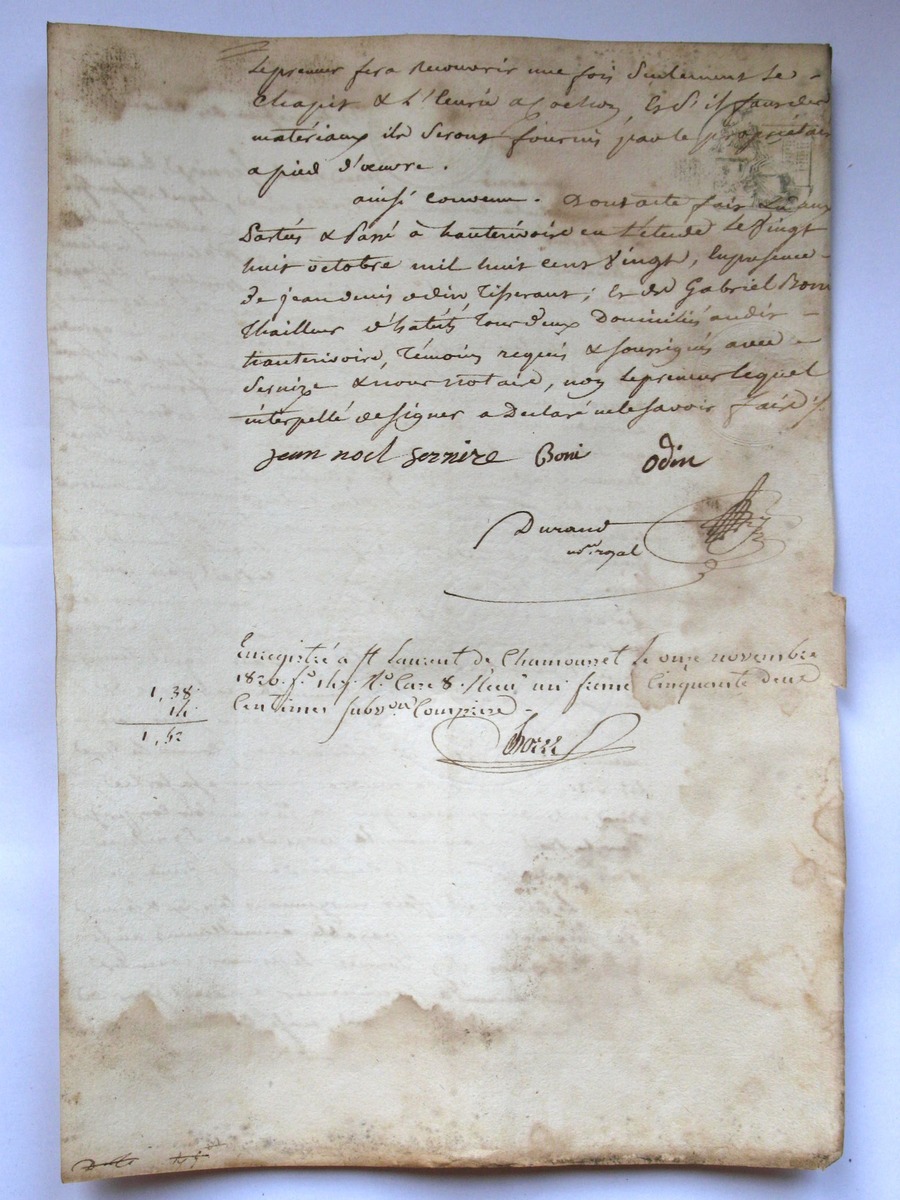 Le preneur fera recouvrir une fois seulement Le
Chapit & L'Ecurie a cochon, Et S'il faut des
matériaux ils Seront fournis par le propriétaire
a pied d'œuvre.
ainsi convenu. Dont acte fait Lu aux
Parties & Passé à hauterivoire en L'étude Le Vingt
huit octobre mil huit cent Vingt, En presence
De jean denis odin, Tisserant; Et de Gabriel Boni
Thailleur d'habits, Tous deux Domiciliés audit
hauterivoire, Témoins requis & soussignés avec
Sernize & nous notaire, non Le preneur Lequel
interpellé de signer a Déclaré ne le Savoir faire
jean noel Sernize Boni odin
Durand
n.re royal
Enregistré a St Laurent de Chamousset Le onze novembre
1820. f.o 147 R.o Case 8. Reçu un franc Cinquante deux
Centimes Subv.on Comprise
1,38
14
1,52